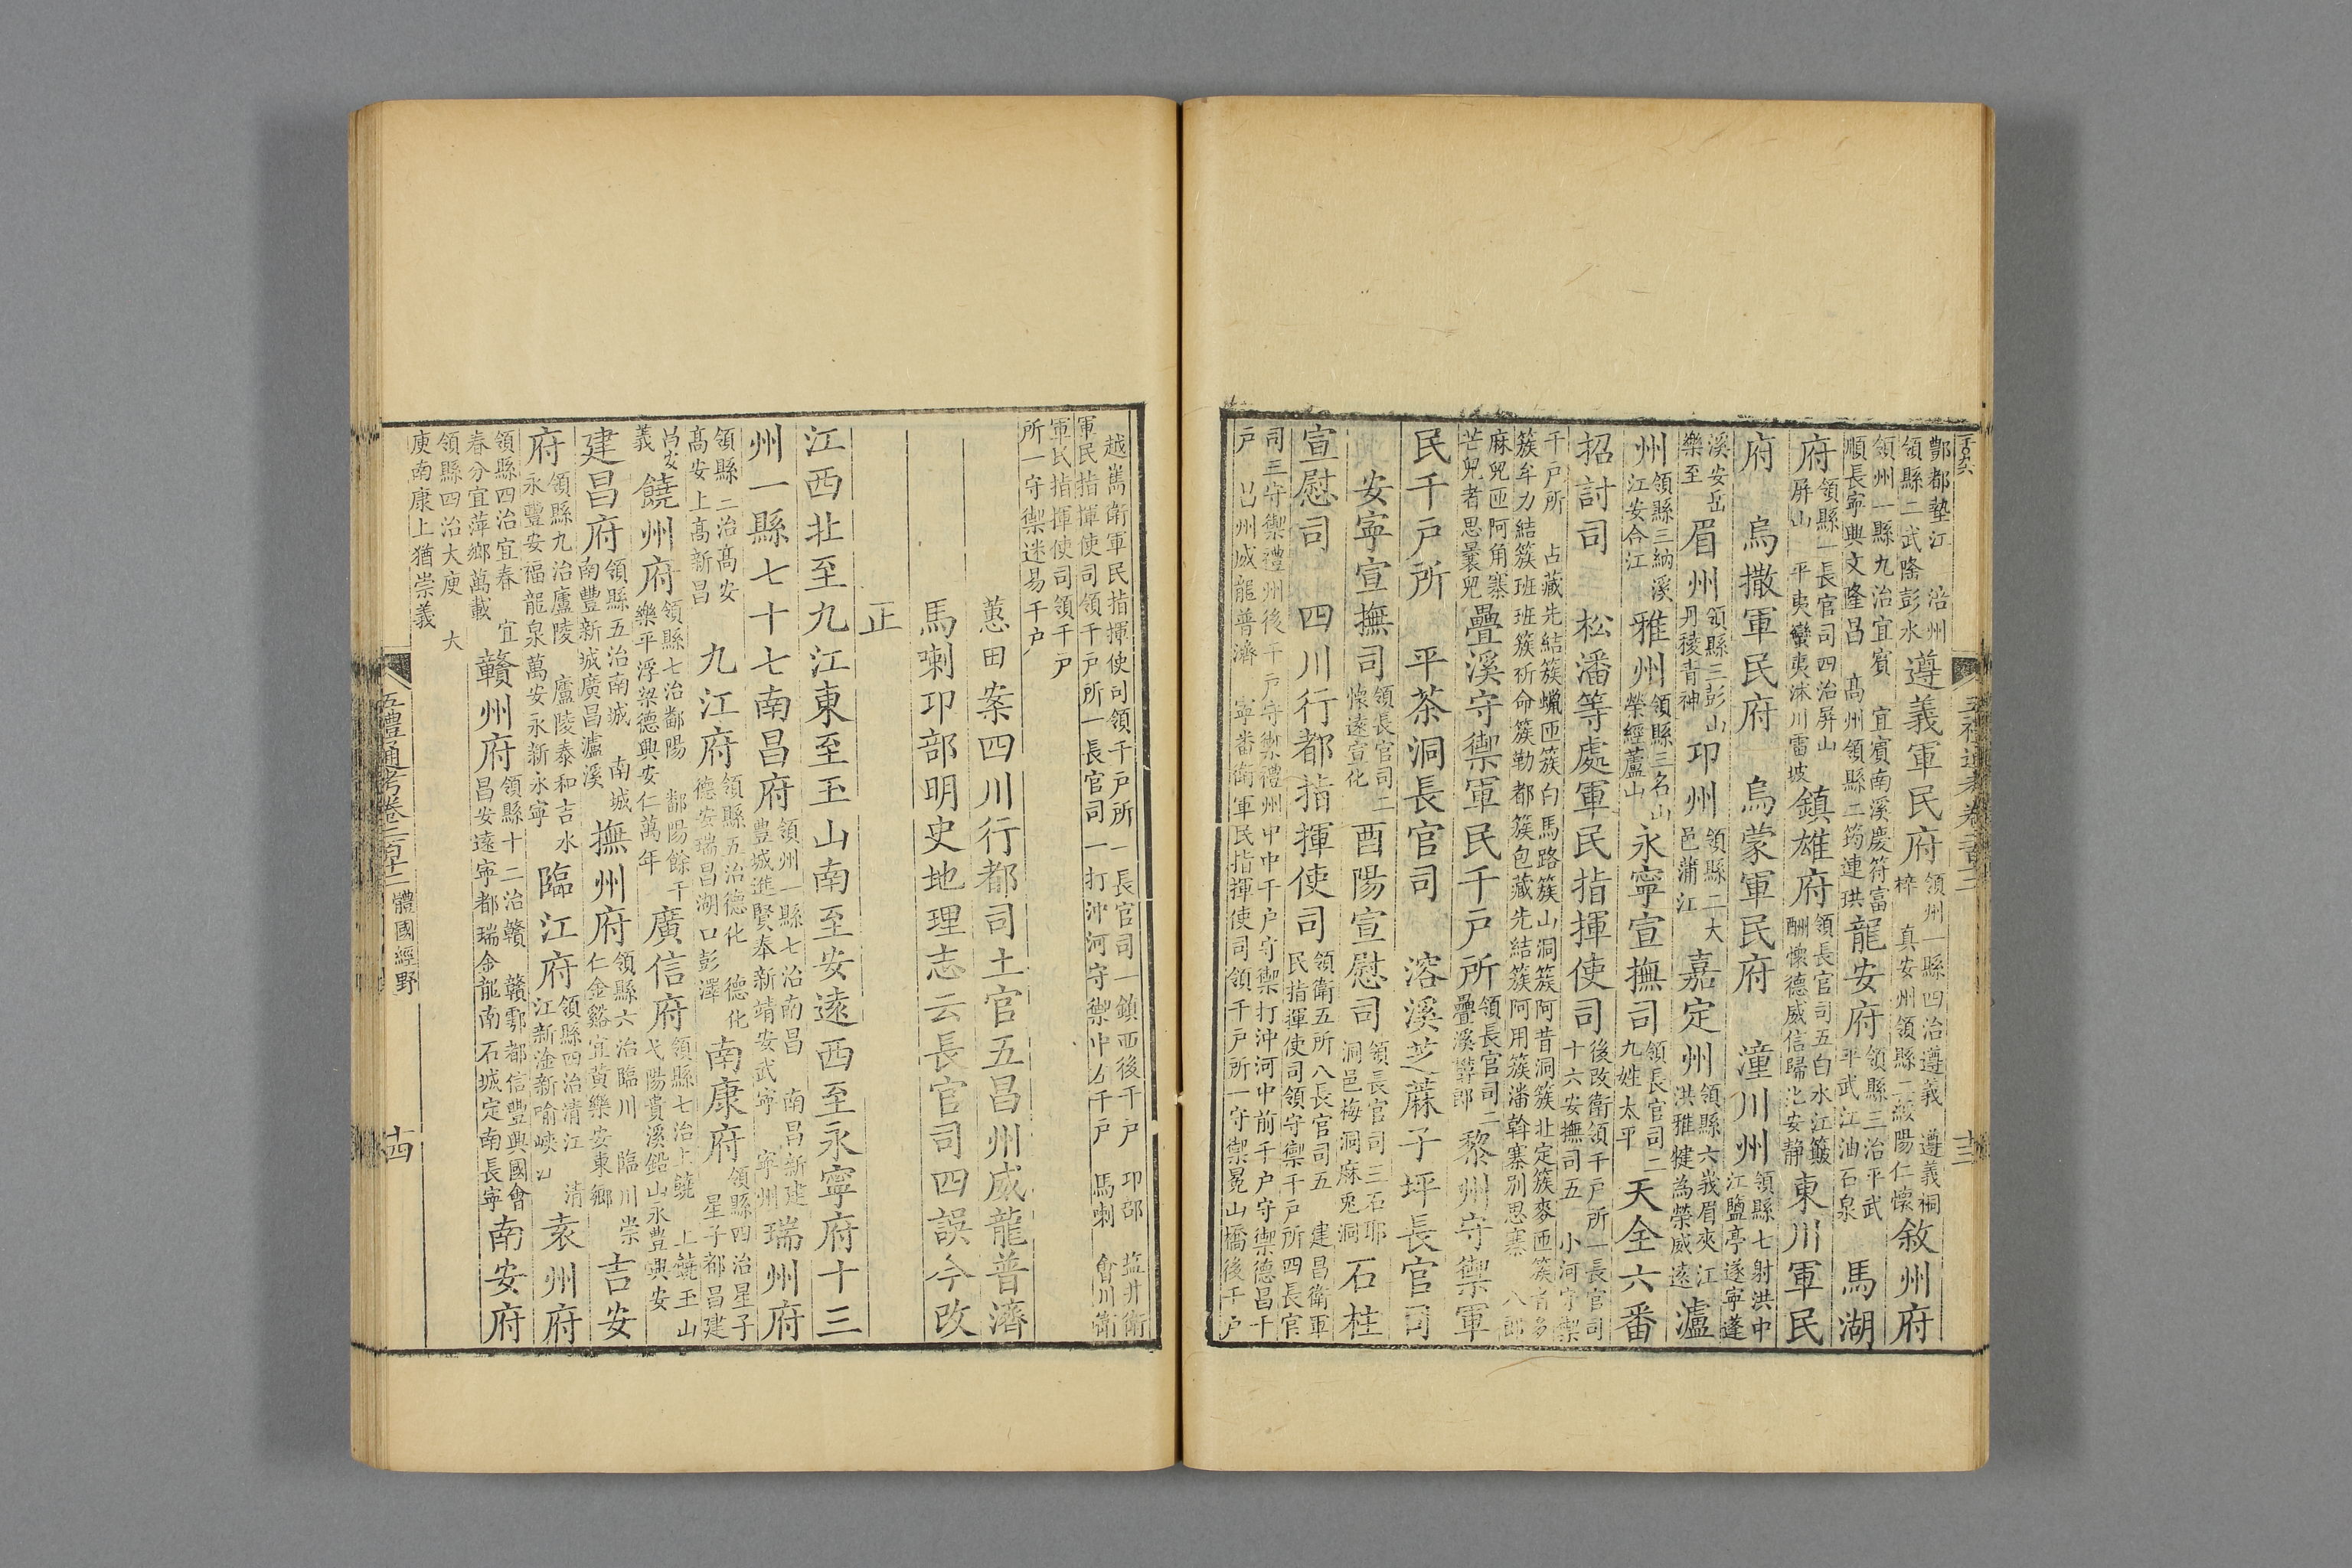 酆都墊江　涪州領縣二武隆彭水　遵義軍民府領州一縣四治遵義　遵義桐梓　真安州領縣二綏陽仁懷　敘州府
領州一縣九治宜賓　宜賓南溪慶符富順長寧興文隆昌　高州領縣二筠連珙　龍安府領縣三治平武　平武江油石泉　馬湖
府領縣一長官司四治屏山　屏山　平夷蠻夷沐川雷坡　鎮雄府領長官司五白水江簸酬懷德威信歸化安靜　東川軍民
府　烏撒軍民府　烏蒙軍民府　潼川州領縣七射洪中江鹽亭遂寧蓬
溪安岳樂至　眉州領縣三彭山丹稜青神　邛州領縣二大邑蒲江　嘉定州領縣六峩眉夾江洪雅犍為榮威遠　瀘
州領縣三納溪江安合江　雅州領縣三名山榮經蘆山　永寧宣撫司領長官司二九姓太平　天全六番
招討司　松潘等處軍民指揮使司後改衛領千戶所一長官司十六安撫司五　小河守禦
千戶所　占藏先結簇蠟匝簇白馬路簇山洞簇阿昔洞簇北定簇麥匝簇者多簇牟力結簇班班簇祈命簇勒都簇包藏先結簇阿用簇潘斡寨別思寨　八郎
麻兒匝阿角寨芒兒者思曩兒　疊溪守禦軍民千戶所領長官司二疊溪鬱郎　黎州守禦軍
民千戶所　平茶洞長官司　溶溪芝蔴子坪長官司
安寧宣撫司領長官司二懷遠宣化　酉陽宣慰司領長官司三石耶洞邑梅洞麻兎洞　石柱
宣慰司　四川行都指揮使司領衛五所八長官司五　建昌衛軍民指揮使司領守禦千戶所四長官
司三守禦禮州後千戶守禦禮州中中千戶守禦打沖河中前千戶守禦德昌千戶　昌州威龍普濟　寧番衛軍民指揮使司領千戶所一守禦冕山橋後千戶
五禮通考卷二百十二
十三
越嶲衛軍民指揮使司領千戶所一長官司一鎮西後千戶　邛部　鹽井衛軍民指揮使司領千戶所一長官司一打沖河守禦中左千戶　馬喇　會川衛
軍民指揮使司領千戶所一守禦迷易千戶
蕙田案四川行都司土官五昌州威龍普濟
馬喇邛部明史地理志云長官司四誤今改
正
江西北至九江東至玉山南至安遠西至永寧府十三
州一縣七十七南昌府領州一縣七治南昌　南昌新建豐城進賢奉新靖安武寧　寧州　瑞州府
領縣三治高安　高安上高新昌　九江府領縣五治德化　德化德安瑞昌湖口彭澤　南康府領縣四治星子　星子都昌建
昌安義　饒州府領縣七治鄱陽　鄱陽餘干樂平浮梁德興安仁萬年　廣信府領縣七治上饒　上饒玉山弋陽貴溪鉛山永豊興安
建昌府領縣五治南城　南城南豐新城廣昌瀘溪　撫州府領縣六治臨川　臨川崇仁金谿宜黃樂安東鄉　吉安
府領縣九治廬陵　廬陵泰和吉水永豐安福龍泉萬安永新永寧　臨江府領縣四治清江　清江新淦新喻峽江　袁州府
領縣四治宜春　宜春分宜萍鄉萬載　贛州府領縣十二治贛　贛雩都信豐興國會昌安遠寧都瑞金龍南石城定南長寧　南安府
領縣四治大庾　大庾南康上猶崇義
五禮通考卷二百十二　體國經野
十四